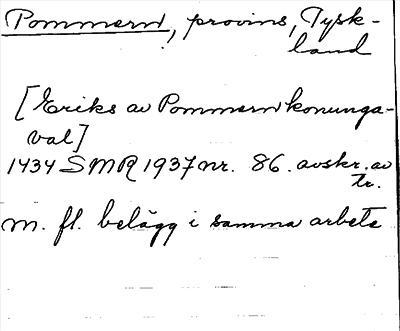 Pommern, provins, Tysk-
land
[Eriks av Pommern konunga-
val]
1434 SMR 1937 nr. 86. avskr. av
tr.
m. fl. belägg i samma arbete